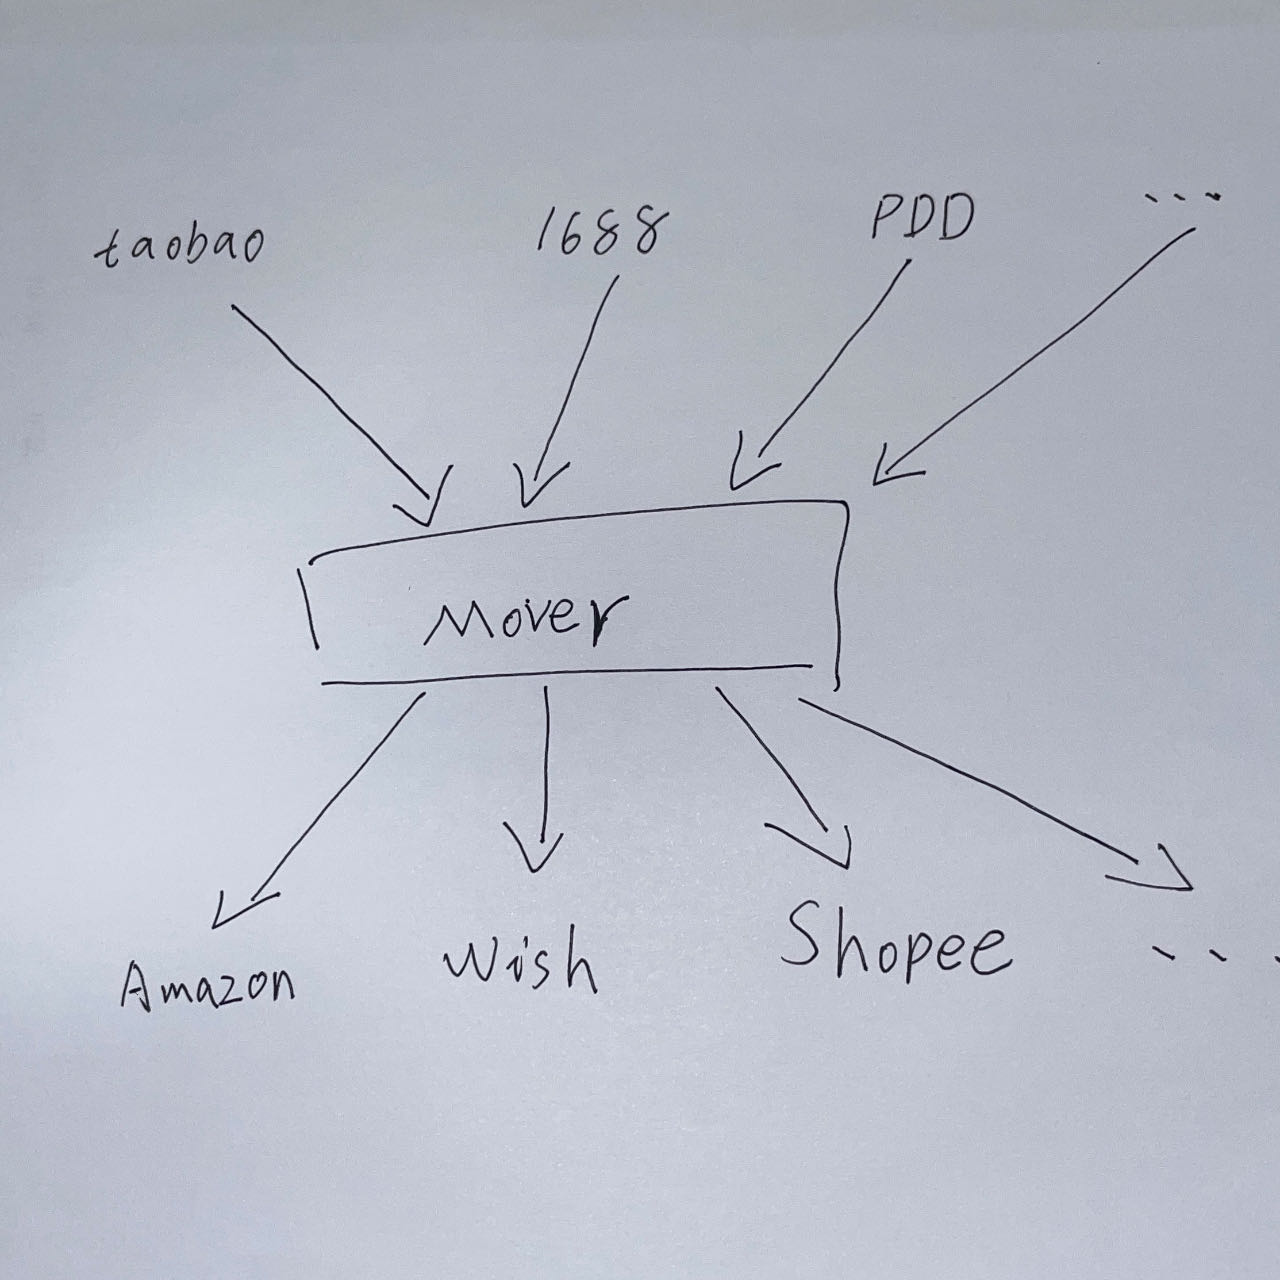 taobao 1688 PDD ...
Mover
Amazon Wish Shopee ...